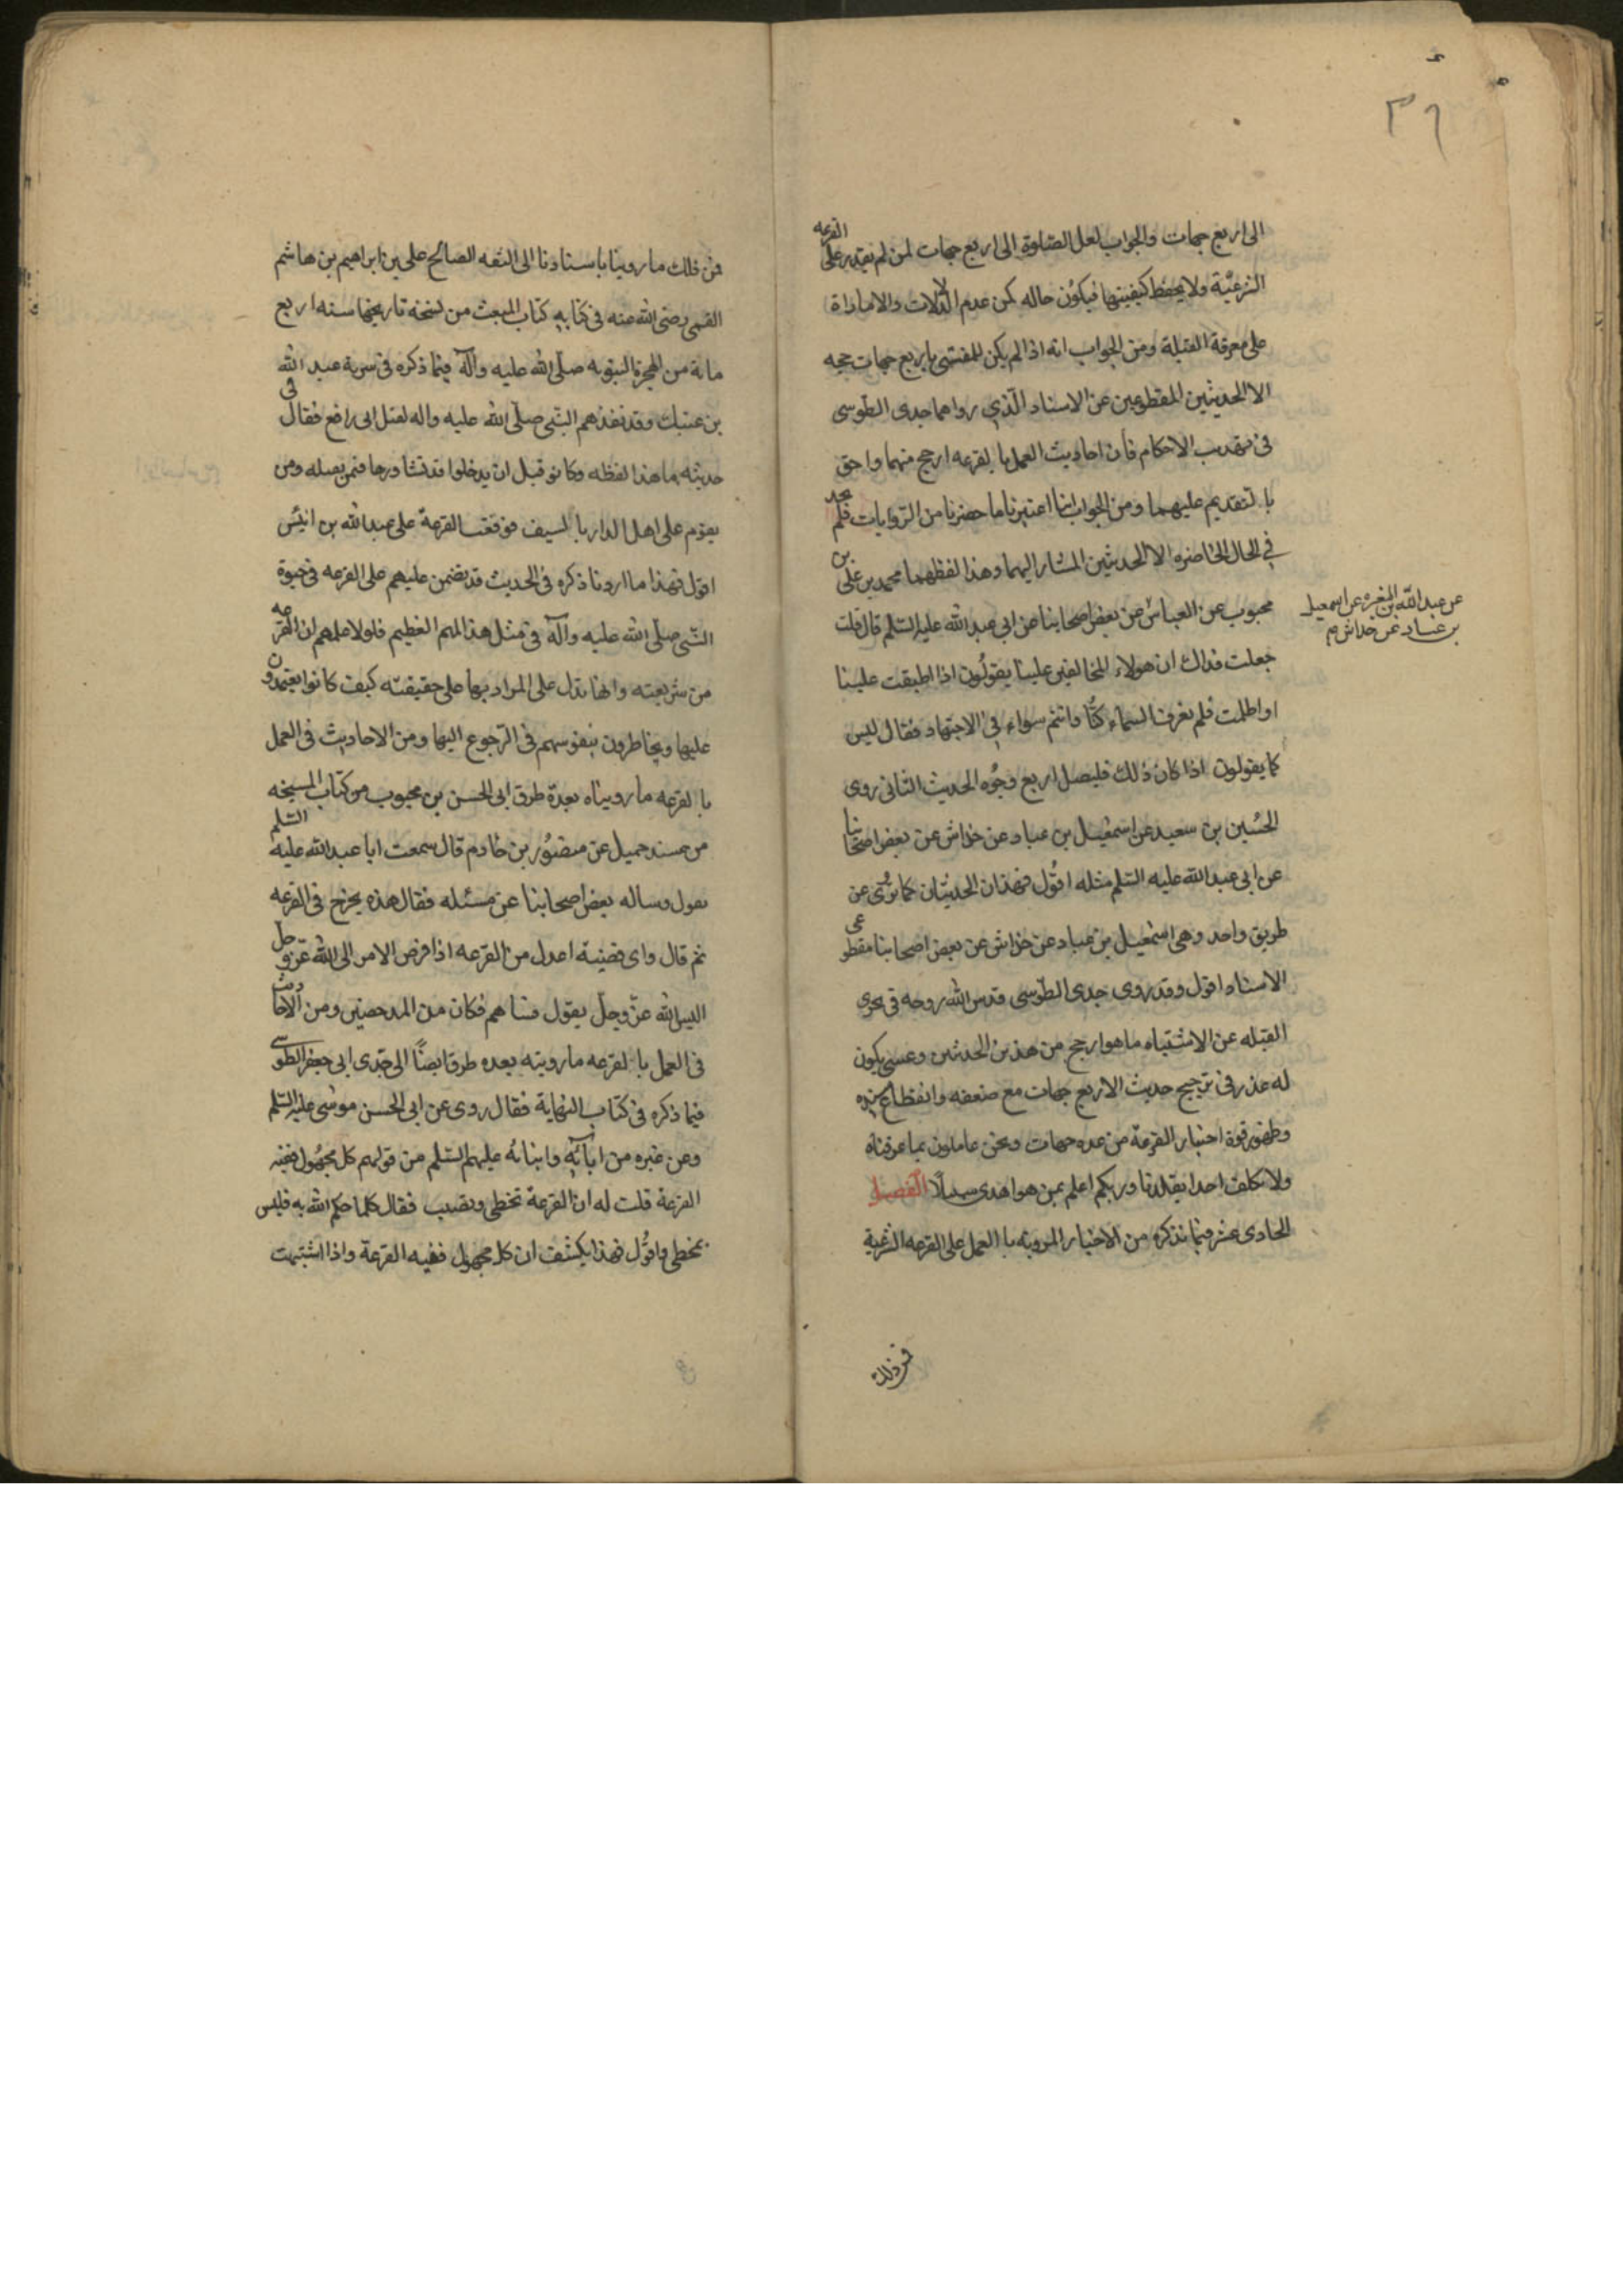 ٣٩
الى اربع جهات والجواب لعل الصلوة الى اربع جهات لمن لم يقدر على القرعه
الشرعيّة ولا يحفظ كيفيتها فيكون حاله كمن عدم الدلالات والامارات
على معرفة القبلة ومن الجواب انه اذا لم يكن للمفتى باربع جهات حجه
الا الحديثين المقطوعين عن الاسناد الّذي رواهما جدى الطوسى
فى تهذيب الاحكام فان احاديث العمل بالقرعه ارجح منهما واحق
بالتقديم عليهما ومن الجواب اننا اعتبرنا ما حضرنا من الروايات فلم نجد
في الحال الحاضره الا الحديثين المشار اليهما وهذا لفظهما محمد بن على بن
محبوب عن العباس عن بعض اصحابنا عن ابي عبد الله عليه السّلم قال قلت
عن عبد الله بن المغيره عن اسمعيل
بن عباد عن خداش م
جعلت فداك ان هولاء المخالفين علينا يقولون اذا اطبقت علينا
او اظلمت فلم نعرف السماء كنّا وانتم سواء في الاجتهاد فقال ليس
كما يقولون اذا كان ذلك فليصل اربع وجوه الحديث الثانى روى
الحسين بن سعيد عن اسمعيل بن عباد عن خداش عن بعض اصحابنا
عن ابى عبد الله عليه السّلم مثله اقول فهذان الحديثان كما ترى عن
طريق واحد وهى اسمعيل بن عباد عن خداش عن بعض اصحابنا مقطوعى
الاسناد اقول وقد روى جدى الطّوسى قدس الله روحه فى تحرى
القبله عن الاشتباه ما هو ارجح من هذين الحديثين وعسى يكون
له عذر فى ترجيح حديث الاربع جهات مع ضعفه وانقطاع سنده
وظهور قوة اخبار القرعة من عده جهات ونحن عاملون بما عرفناه
ولا نكلف احدا يقلدنا وربكم اعلم بمن هو اهدى سبيلًا الفصل
الحادى عشر فيما نذكره من الاخبار المرويه بالعمل على القرعه الشرعية
فمن ذلك
فمن ذلك ما روينا باسنادنا الى الثقه الصالح على بن ابراهيم بن هاشم
القمى رضى الله عنه فى كتابه كتاب المبعث من نسخة تاريخها سنه اربع
مائة من الهجرة النبويه صلّى الله عليه وآله فيما ذكره فى سرية عبد الله
بن عتيك وقد نفذهم النبّى صلّى الله عليه واله لقتل ابى رافع فقال فى
حديثه ما هذا لفظه وكانو قبل ان يدخلوا قد تشاوروا فمن يقتله ومن
يقوم على اهل الدار بالسيف فوقعت القرعة على عبد الله بن انيس
اقول فهذا ما اردنا ذكره فى الحديث قد تضمن عليهم على القرعه فى حيوة
النّبى صلّى الله عليه وآله فى مثل هذا المهم العظيم فلولا علمهم ان القرعه
من شريعته وانها تدل على المراد بها على حقيقته كيف كانوا يعتمدون
عليها ويخاطرون بنفوسهم فى الرّجوع اليها ومن الاحاديث فى العمل
بالقرعه ما رويناه بعدة طرق الى الحسن بن محبوب من كتاب المسيخه
من مسند جميل عن منصور بن حازم قال سمعت ابا عبد الله عليه السّلم
يقول وساله بعض اصحابنا عن مسئله فقال هذه يخرج فى القرعه
ثم قال واى قضية اعدل من القرعه اذا فوض الامر الى الله عزّ وجل
اليس الله عزّ وجلّ يقول فساهم فكان من المدحضين ومن الاحاديث
فى العمل بالقرعه ما رويته بعده طرق ايضًا الى جدى ابى جعفر الطوسى
فيما ذكره فى كتاب النهاية فقال روى عن ابى الحسن موسى عليه السّلم
وعن غيره من ابائه وابنائه عليهم السّلم من قولهم كل مجهول ففيه
القرعة قلت له ان القرعة تخطى وتصيب فقال كلما حكم الله به فليس
بمخطى واقول فهذا يكشف ان كل مجهول ففيه القرعة واذا اشتبهت